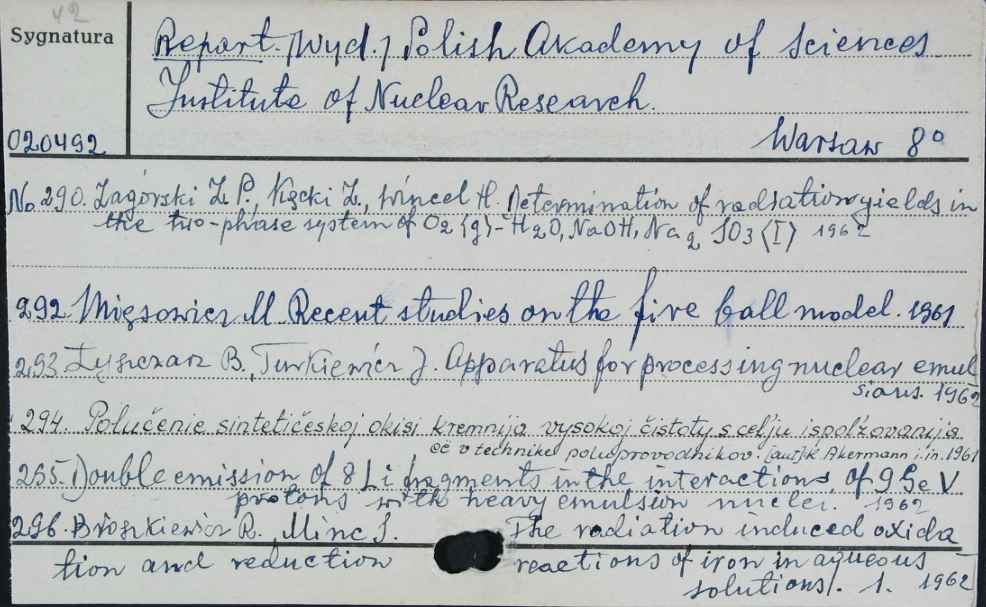 42
Sygnatura
Report. /Wyd./ Polish Akademy of Sciences
Institute of Nuclear Research.
020492
Warsaw 8°
No 290. Zagórski Z. P., Kęcki Z., Wincel H. Determination of radiation yields in
the two-phase system of O2 (g)-H2O, NaOH, Na2 SO3 (I) 1962
292 Mięsowicz M Recent studies on the fire ball model. 1961
293 Łyszczarz B., Turkiewicz J. Apparatus for processing nuclear emul
sians. 1962
294. Polučenie sintetičeskoj okisi kremnija vysokoj čistoty s cel'ju ispol'zovanija
eë v technike poluprovodnikov. (aut) K. Akermann i.in. 1961
255. Double emission of 8 Li fragments in the interactions of 9 Ge V
protons with heavy emulsion nuclei. 1962
296. Broszkiewicz R., Minc S. The radiation induced oxida
tion and reduction reactions of iron in aqueous
solutions/. 1. 1962